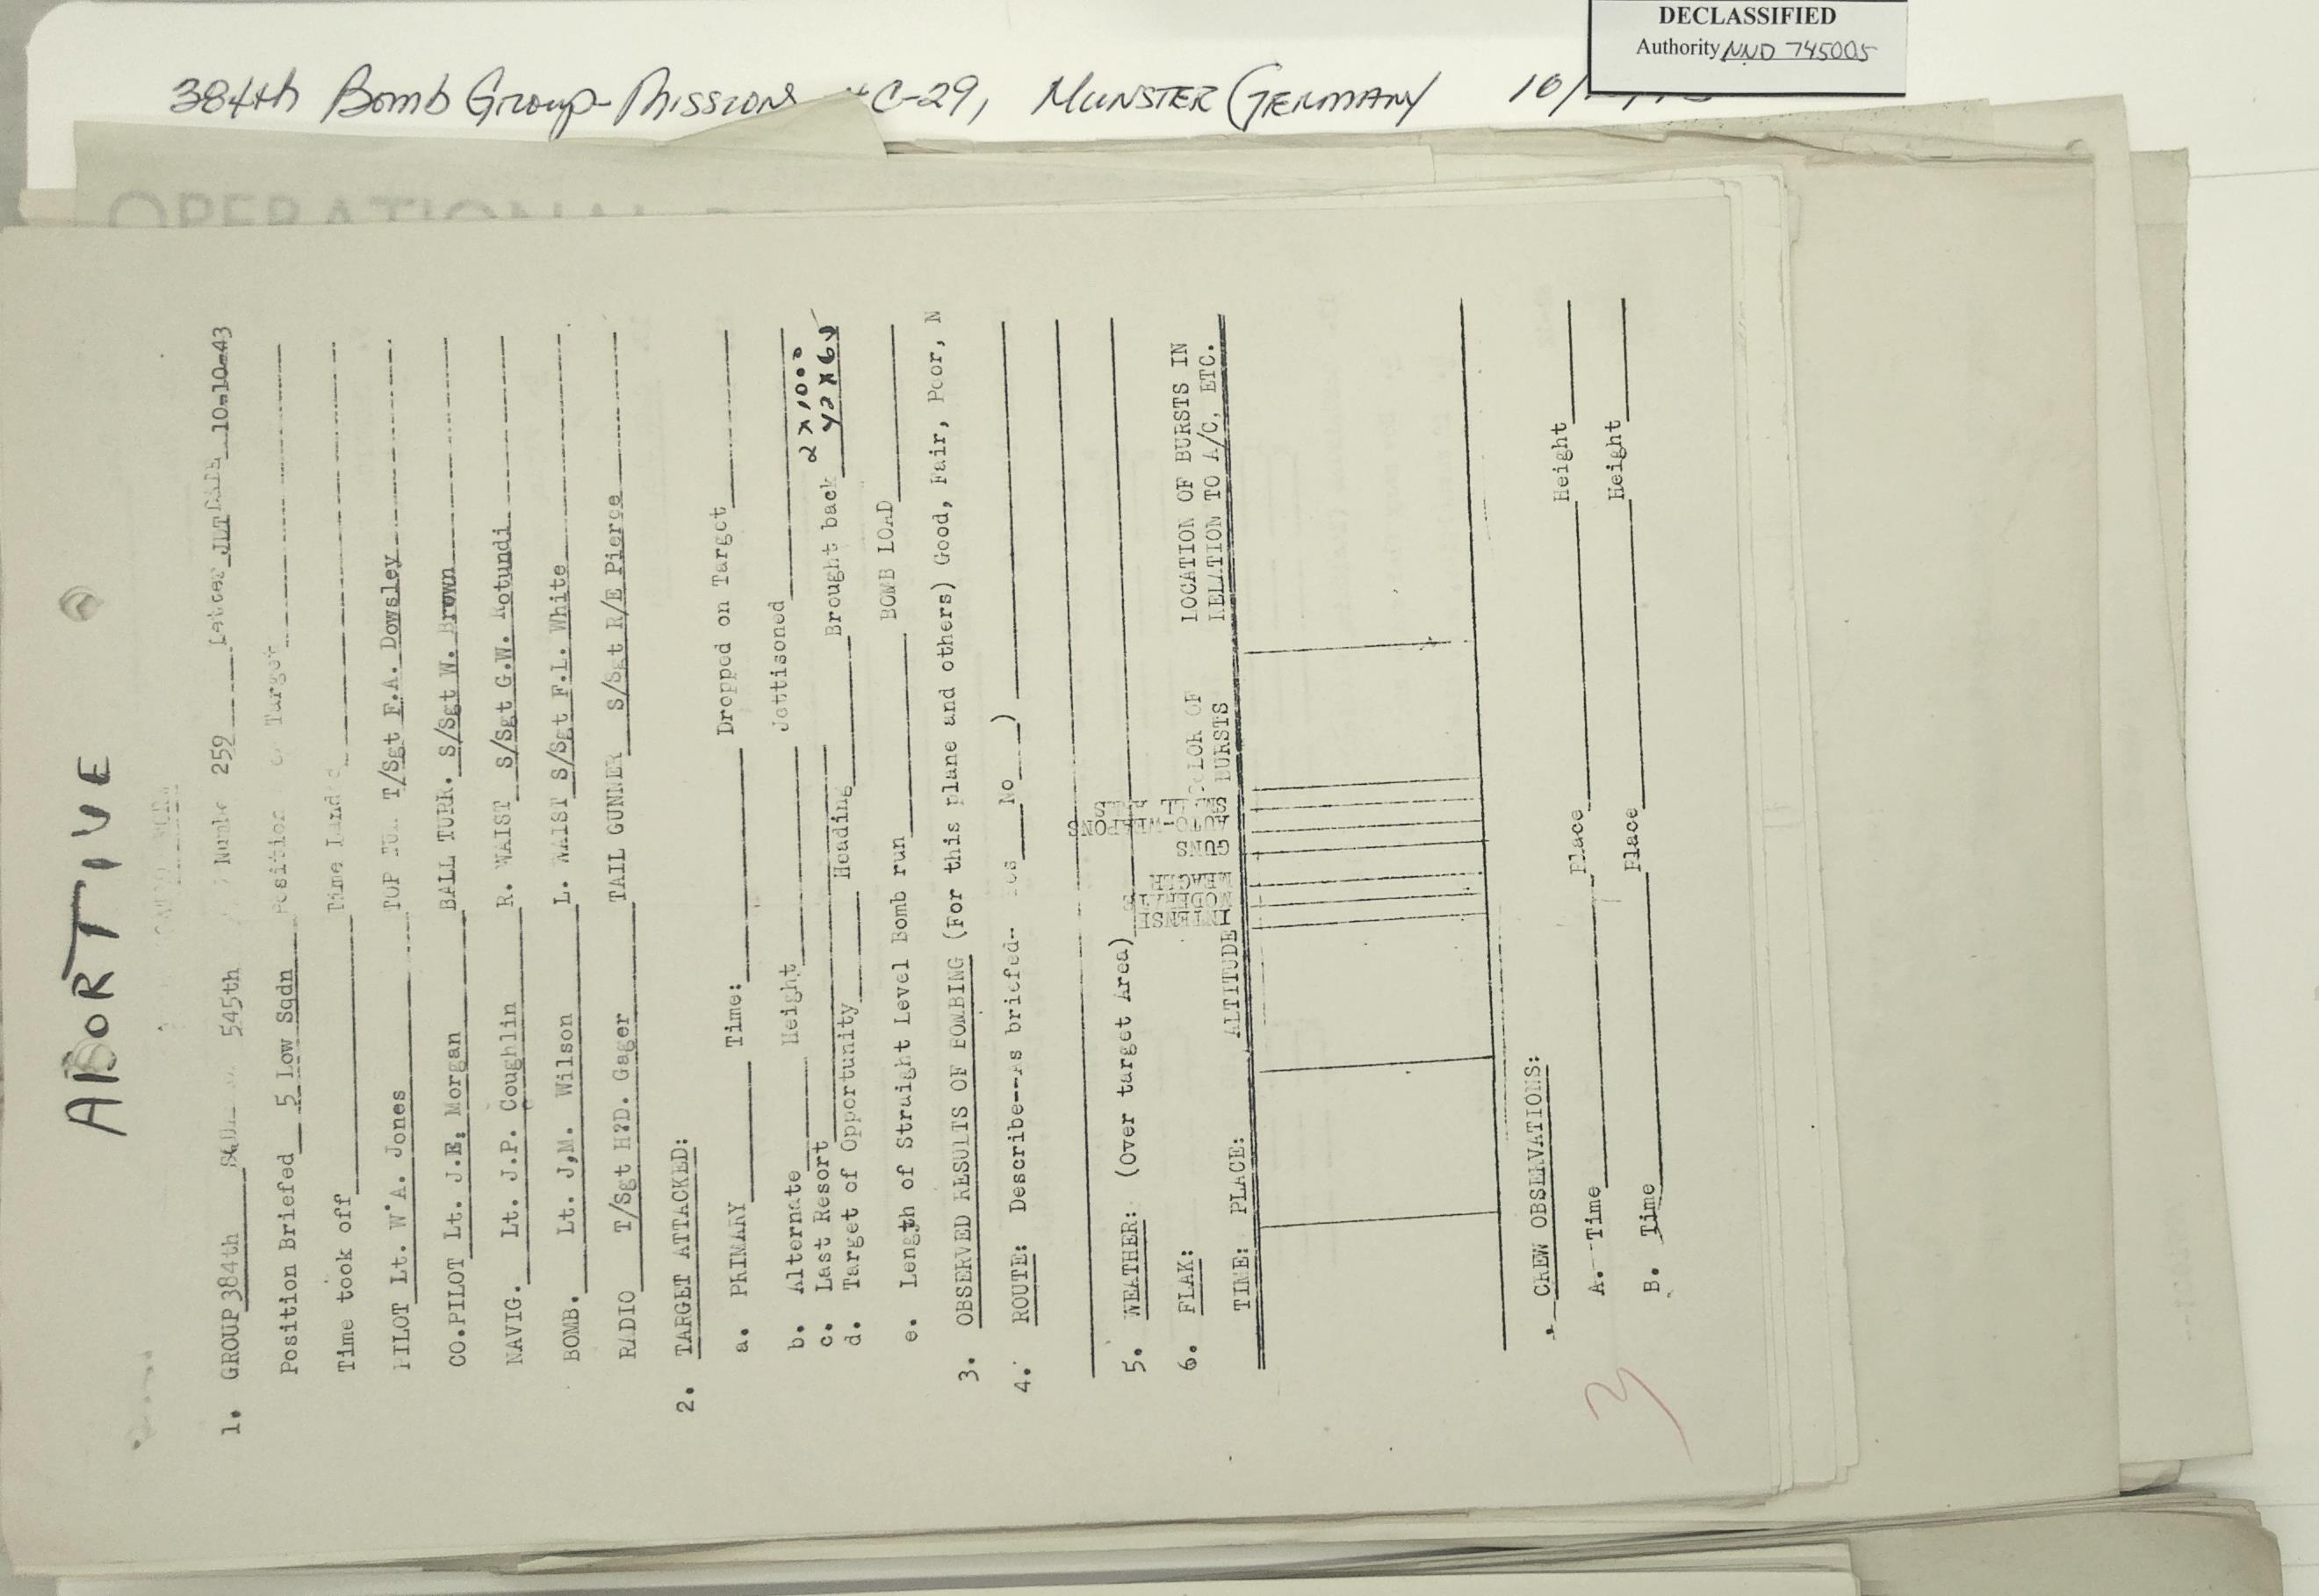 DECLASSIFIED
Authority NND 745005
384th Bomb Group-Mission #C-29, MUNSTER GERMANY 10/
OPERATIONAL
ABORTIVE
1. GROUP 384th 545th Number 259 Letter 10-10-43
Position Briefed 5 Low Sqdn Position Target
Time took off Time Landed
PILOT Lt. W.A. Jones TOP TUR T/Sgt F.A. Dowsley
CO.PILOT Lt. J.E. Morgan BALL TURR. S/Sgt W. Brown
NAVIG. Lt. J.P. Coughlin R. WAIST S/Sgt G.W. Rotundi
BOMB. Lt. J,M. Wilson L. WAIST S/Sgt F.L. White
RADIO T/Sgt H?D. Gager TAIL GUNNER S/Sgt R/E Pierce
2. TARGET ATTACKED:
a. PRIMARY Time: Dropped on Target
b. Alternate Height Jettisoned
2 x 1000
c. Last Resort Brought back 42 x 60
d. Target of Opportunity Heading
e. Length of Straight Level Bomb run BOMB LOAD
3. OBSERVED RESULTS OF BOMBING (For this plane and others) Good, Fair, Poor, N
4. ROUTE: Describe--As briefed- Yes No )
5. WEATHER: (Over target Area)
6. FLAK: INTENSE GUNS AUTO WEAPONS COLOR OF LOCATION OF BURSTS IN
TIME: PLACE: ALTITUDE BURSTS RELATION TO A/C, ETC.
CREW OBSERVATIONS:
A.--Time Place Height
B. Time Place Height
3